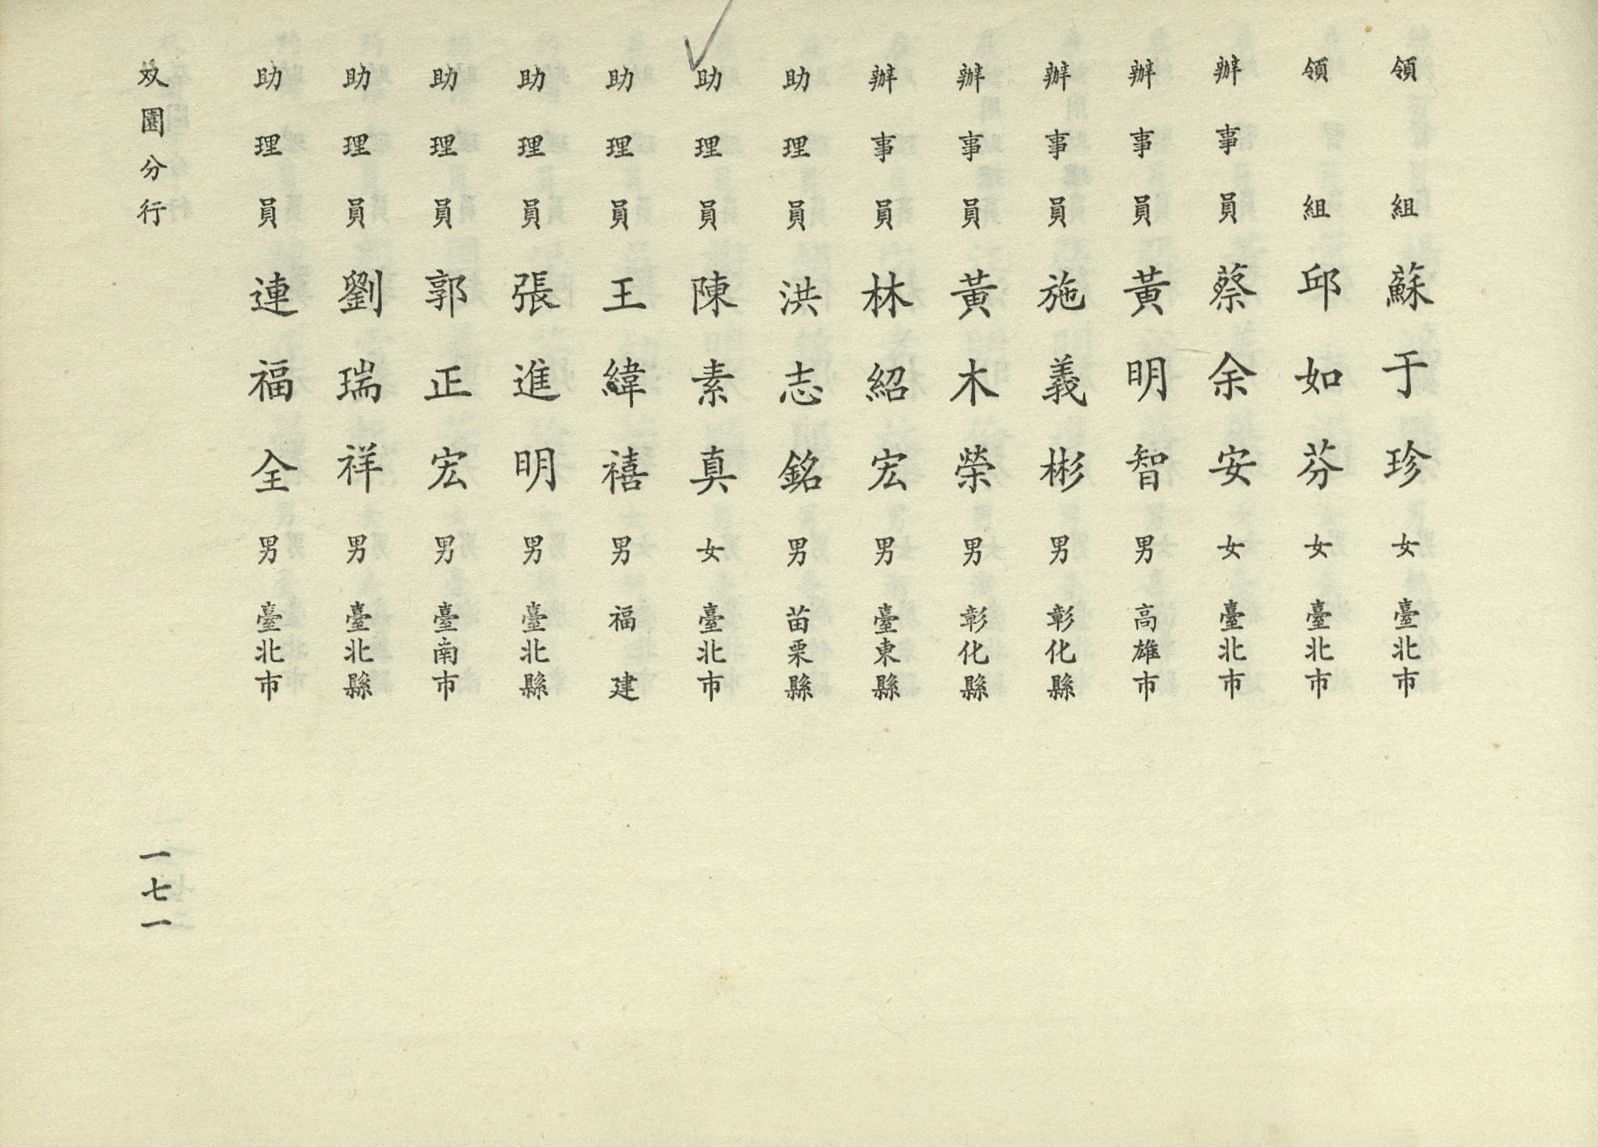 領組蘇于珍女臺北市
領組邱如芬女臺北市
辦事員蔡余安女臺北市
辦事員黃明智男高雄市
辦事員施義彬男彰化縣
辦事員黃木榮男彰化縣
辦事員林紹宏男臺東縣
助理員洪志銘男苗栗縣
助理員陳素真女臺北市
助理員王緯禧男福建
助理員張進明男臺北縣
助理員郭正宏男臺南市
助理員劉瑞祥男臺北縣
助理員連福全男臺北市
双園分行
一七一